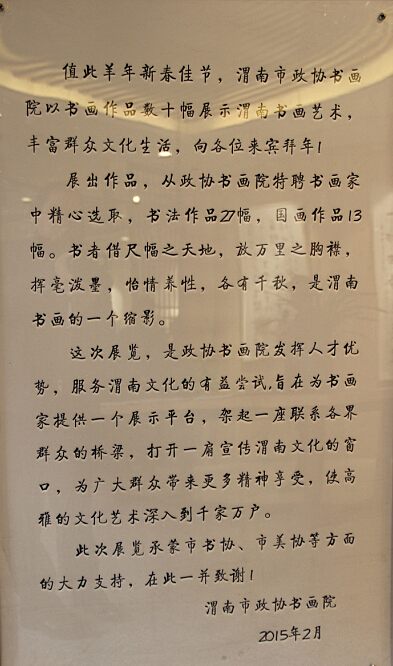 值此羊年新春佳节，渭南市政协书画
院以书画作品数十幅展示渭南书画艺术，
丰富群众文化生活，向各位来宾拜年！
展出作品，从政协书画院特聘书画家
中精心选取，书法作品27幅，国画作品13
幅。书者借尺幅之天地，放万里之胸襟，
挥毫泼墨，怡情养性，各有千秋，是渭南
书画的一个缩影。
这次展览，是政协书画院发挥人才优
势，服务渭南文化的有益尝试，旨在为书画
家提供一个展示平台，架起一座联系各界
群众的桥梁，打开一扇宣传渭南文化的窗
口，为广大群众带来更多精神享受，使高
雅的文化艺术深入到千家万户。
此次展览承蒙市书协、市美协等方面
的大力支持，在此一并致谢！
渭南市政协书画院
2015年2月